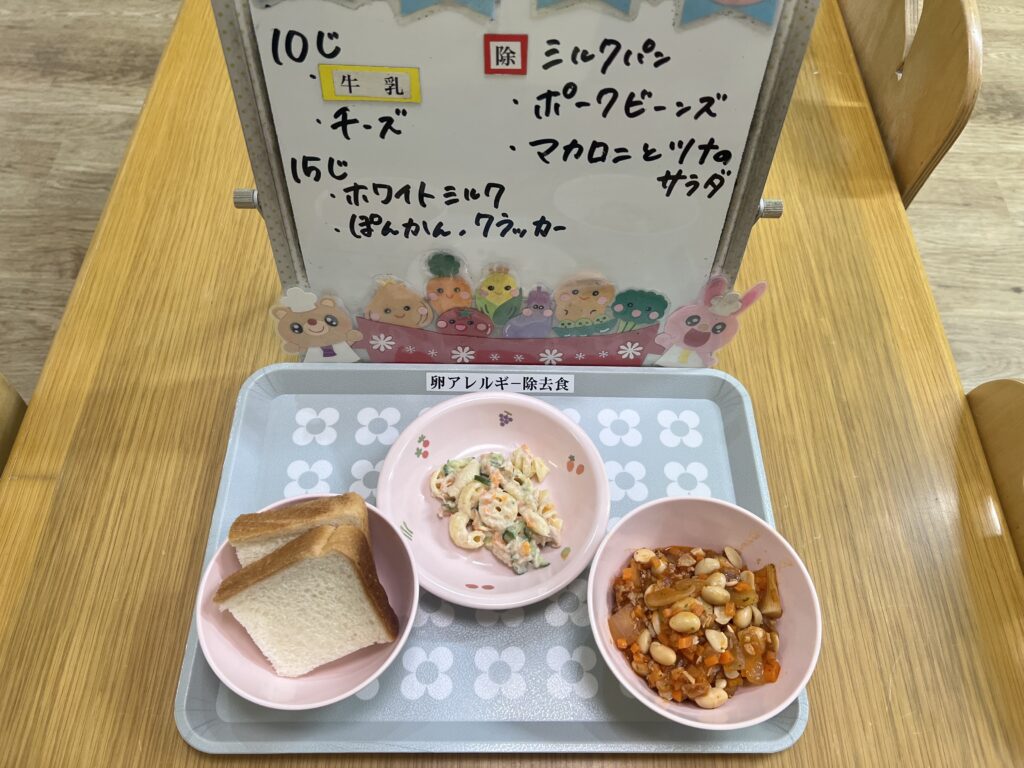 10じ
・牛乳
・チーズ
15じ
・ホワイトミルク
・ぽんかん・クラッカー
除 ミルクパン
・ポークビーンズ
・マカロニとツナの
サラダ
卵アレルギー除去食